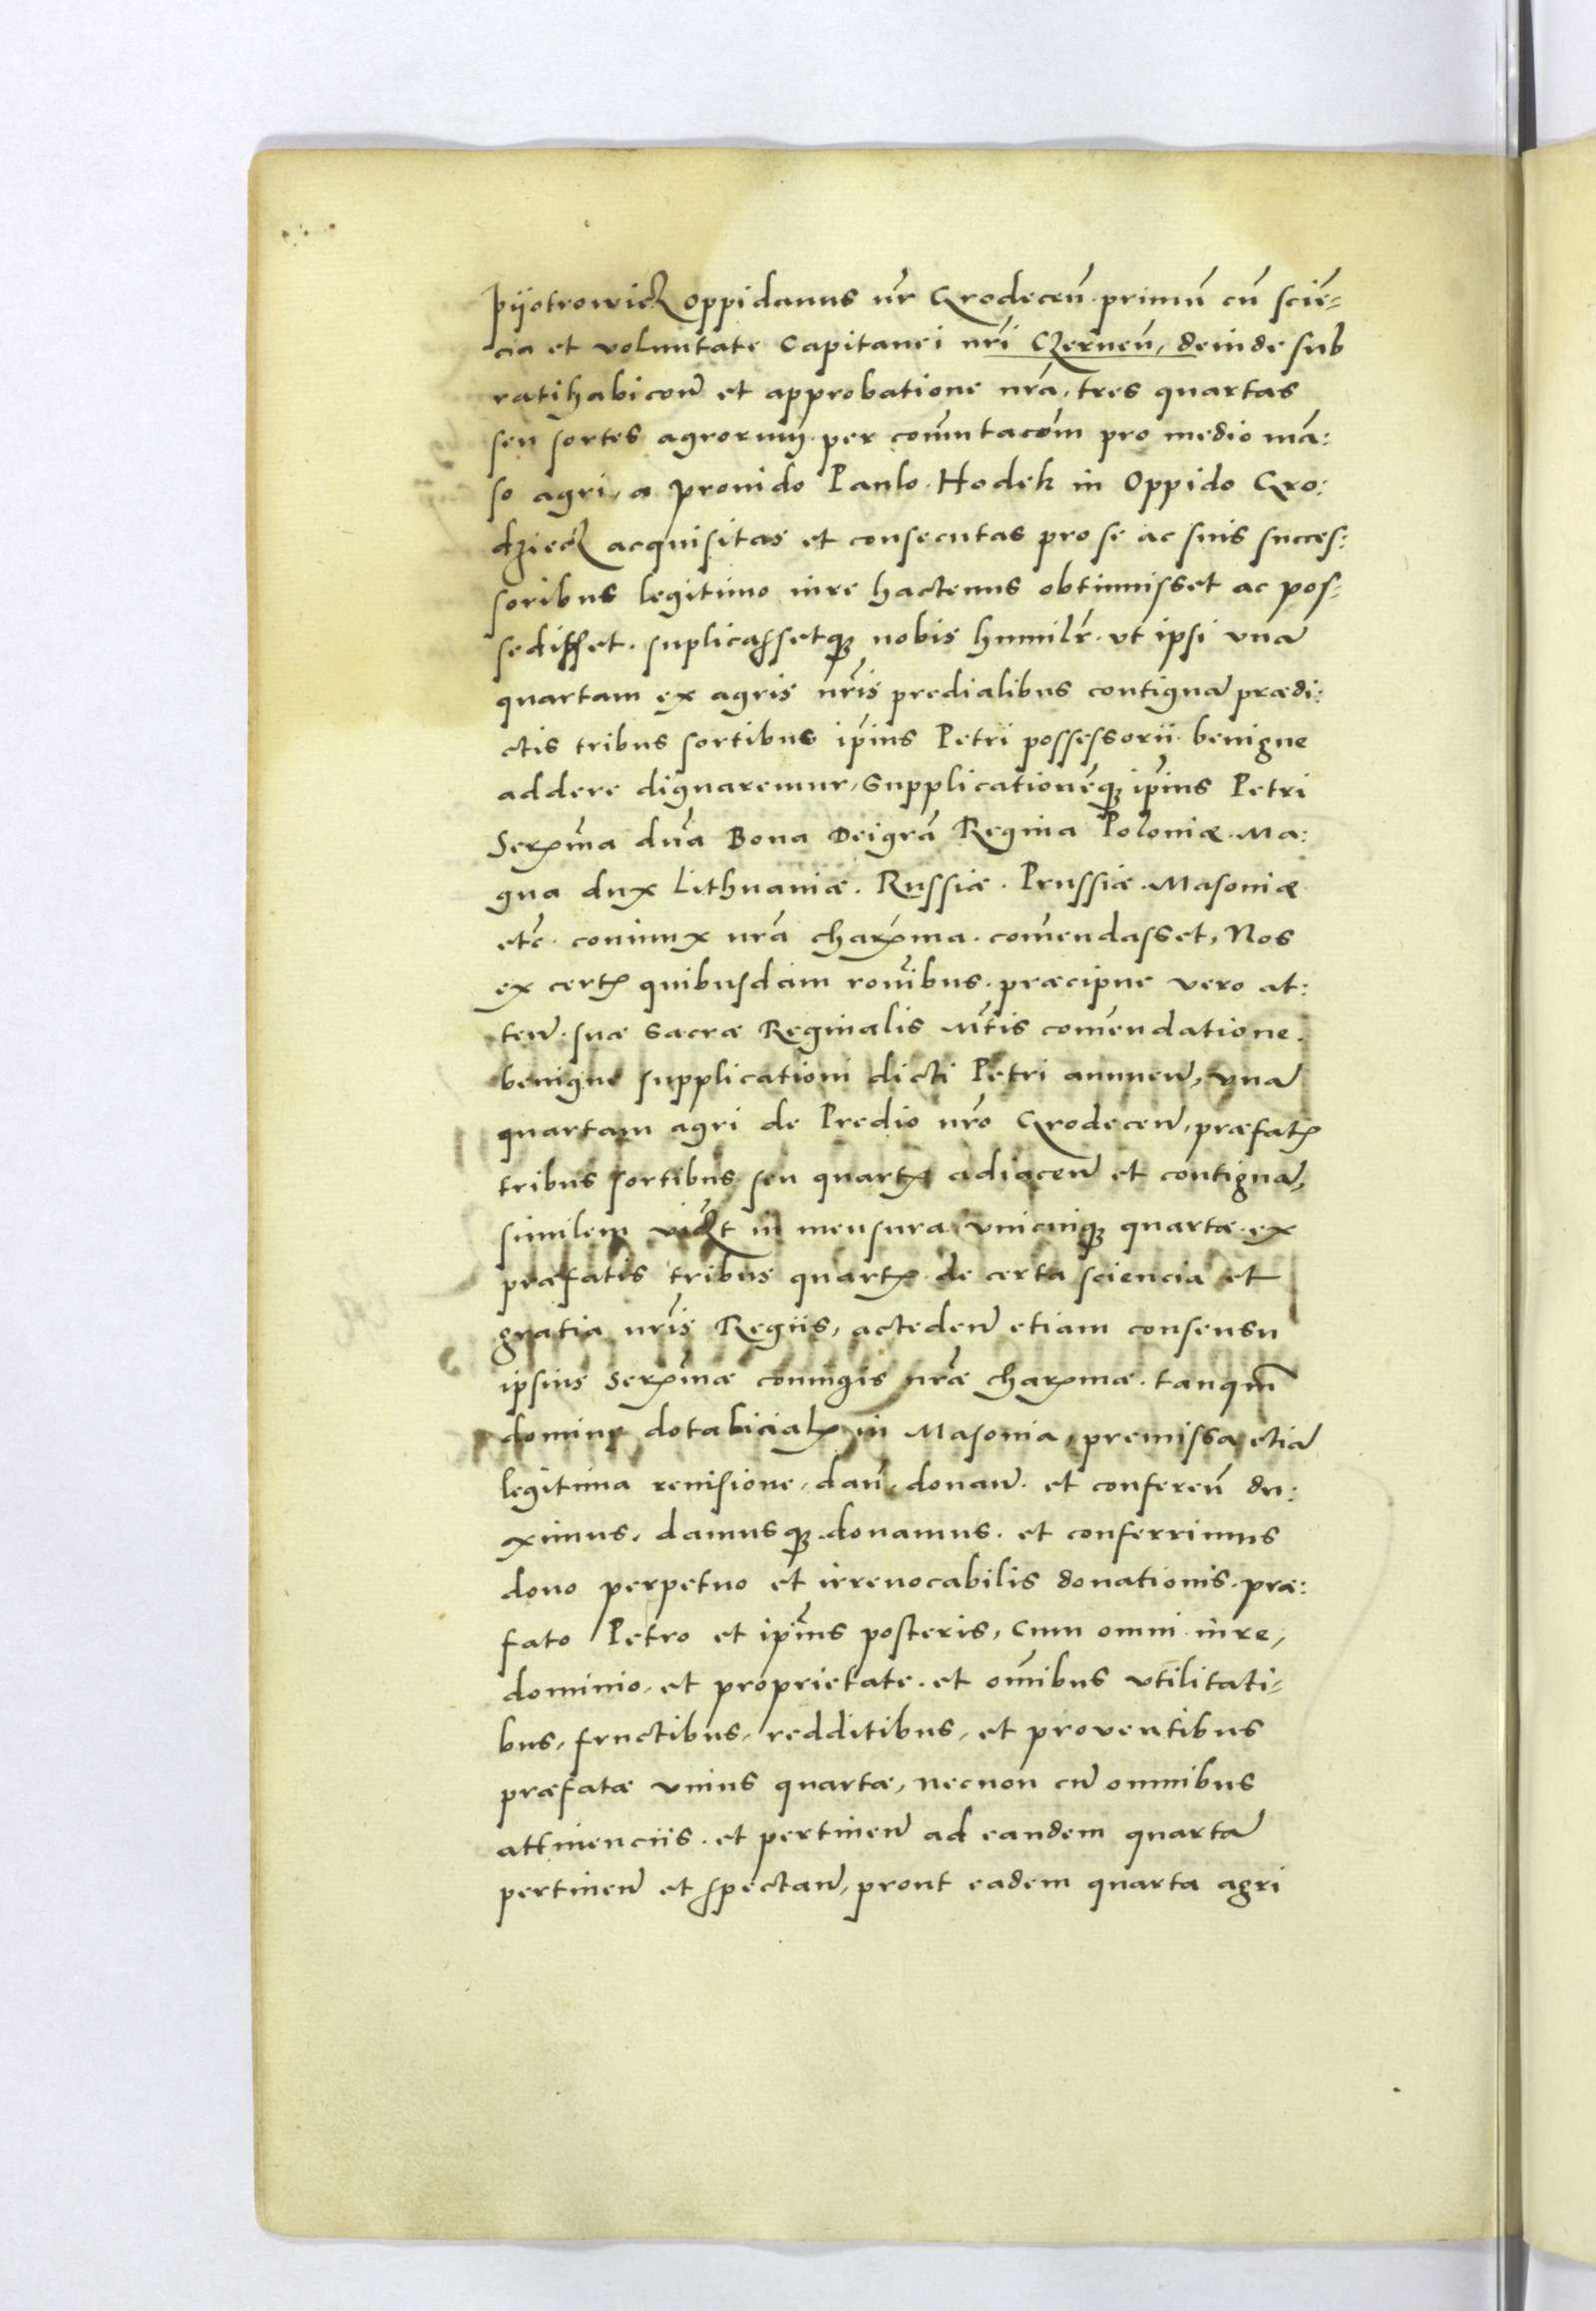 Pÿotrowicz oppidanus nr̃ Grodeceñ. primũ cũ sciẽ-
cia et voluntate Capitanei nr̃i Czerneñ, deinde sub
ratihabicoñe et approbatione nr̃a, tres quartas
seu sortes agrorum. per com̃utacoñm pro medio mã:
so agri, a prouido Paulo Hodek in Oppido Gro:
dziecz acquisitas et consecutas pro se ac suis succes:
soribus legitimo iure hactenus obtinuisset ac pos-
sedisset. suplicassetq; nobis humilr̃. vt ipsi vnã
quartam ex agris nr̃is predialibus contiguã prædi:
ctis tribus sortibus ip̃ius Petri possessorii benigne
addere dignaremur, Supplicationẽq; ip̃ius Petri
Serẽma dña Bona Dei grã Regina Poloniæ. Ma:
gna dux Lithuaniæ. Russiæ. Prussiæ. Masouiæ
etc̃. coniunx nr̃a charẽma. com̃endasset, Nos
ex certis quibusdam roñibus. præcipue vero at:
teñ. suæ Sacræ Reginalis Mt̃is com̃endatione.
benigne supplicationi dicti Petri annueñ, vnã
quartam agri de Predio nr̃o Grodeceñ, præfatis
tribus sortibus seu quartis adiaceñ et contiguã,
similem vidlt in mensura vnicuiq; quartæ ex
præfatis tribus quartis. de certa sciencia et
gratia nr̃is Regiis, actedeñ etiam consensu
ipsius Serẽmæ coniugis nr̃æ charẽmæ. tanqm̃
dominę dotalicialis in Masouia, premissa etiã
legitima reuisione, dañ, donañ. et confereñ du:
ximus, damusq; donamus. et conferrimus
dono perpetuo et irreuocabilis donationis. præ:
fato Petro et ip̃ius posteris, Cum omni iure,
dominio, et proprietate. et om̃ibus vtilitati-
bus, fructibus, redditibus, et prouentibus
præfatæ vnius quartæ, necnon cũ omnibus
attinenciis. et pertineñ ad eandem quartã
pertineñ et spectañ, prout eadem quarta agri